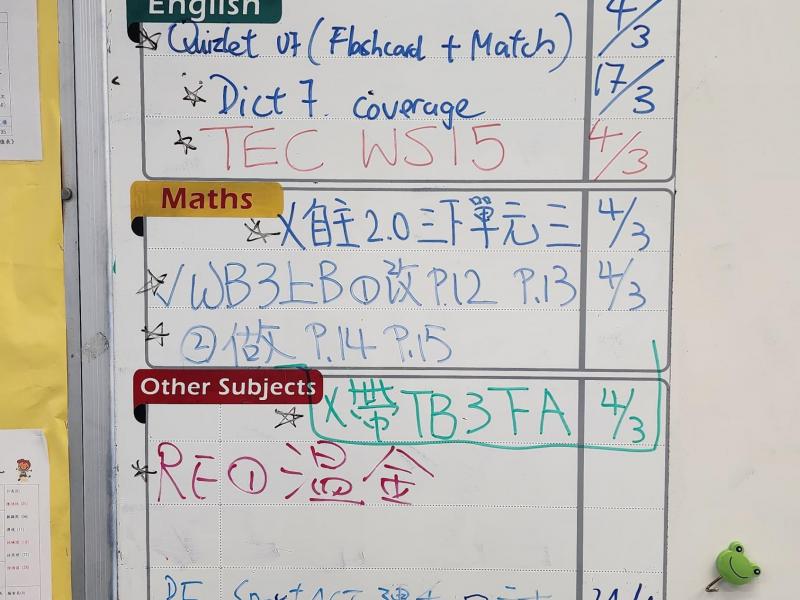 English
Quizlet U7 (Flashcard + Match) 4/3
Dict 7. coverage 17/3
TEC WS15 4/3
Maths
X自主2.0三下單元三 4/3
√WB3上B①改P.12 P.13 4/3
②做 P.14 P.15
Other Subjects
X帶TB3下A 4/3
RE①溫金